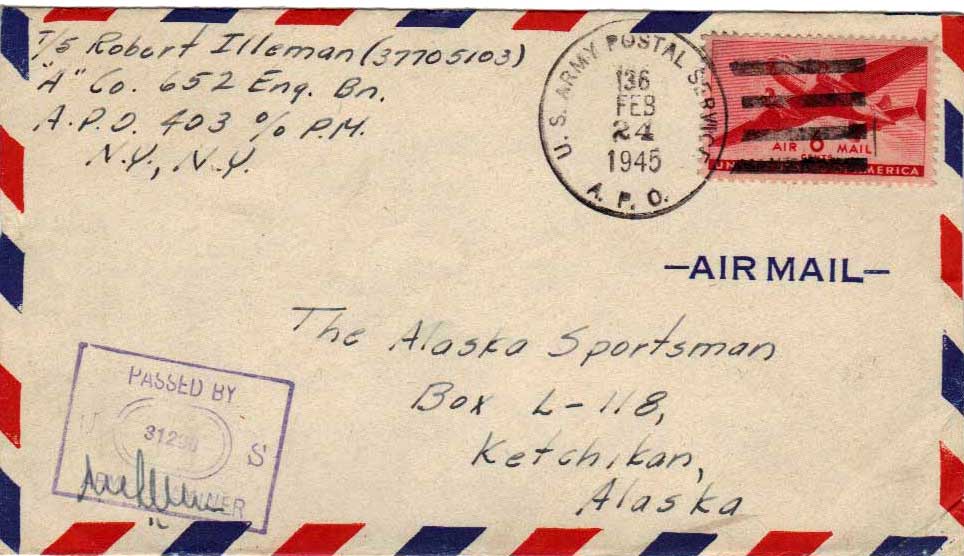 T/5 Robert Illeman (37705103)
"A" Co. 652 Eng. Bn.
A.P.O. 403 % P.M.
N.Y., N.Y.
U.S. ARMY POSTAL SERVICE
136
FEB
24
1945
A. P. O.
AIR 6 MAIL
CENTS
AMERICA
—AIR MAIL—
The Alaska Sportsman
Box L-118,
Ketchikan,
Alaska
PASSED BY
U S